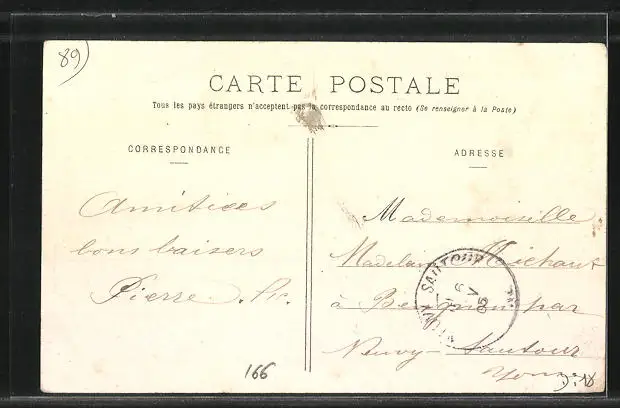 89)
CARTE POSTALE
Tous les pays étrangers n'acceptent pas la correspondance au recto (Se renseigner à la Poste)
CORRESPONDANCE
ADRESSE
Amitiées
bons baisers
Pierre
166
Mademoiselle
Michaut
à par
Neuvy-Sautour
Yonne
SAUTOUR